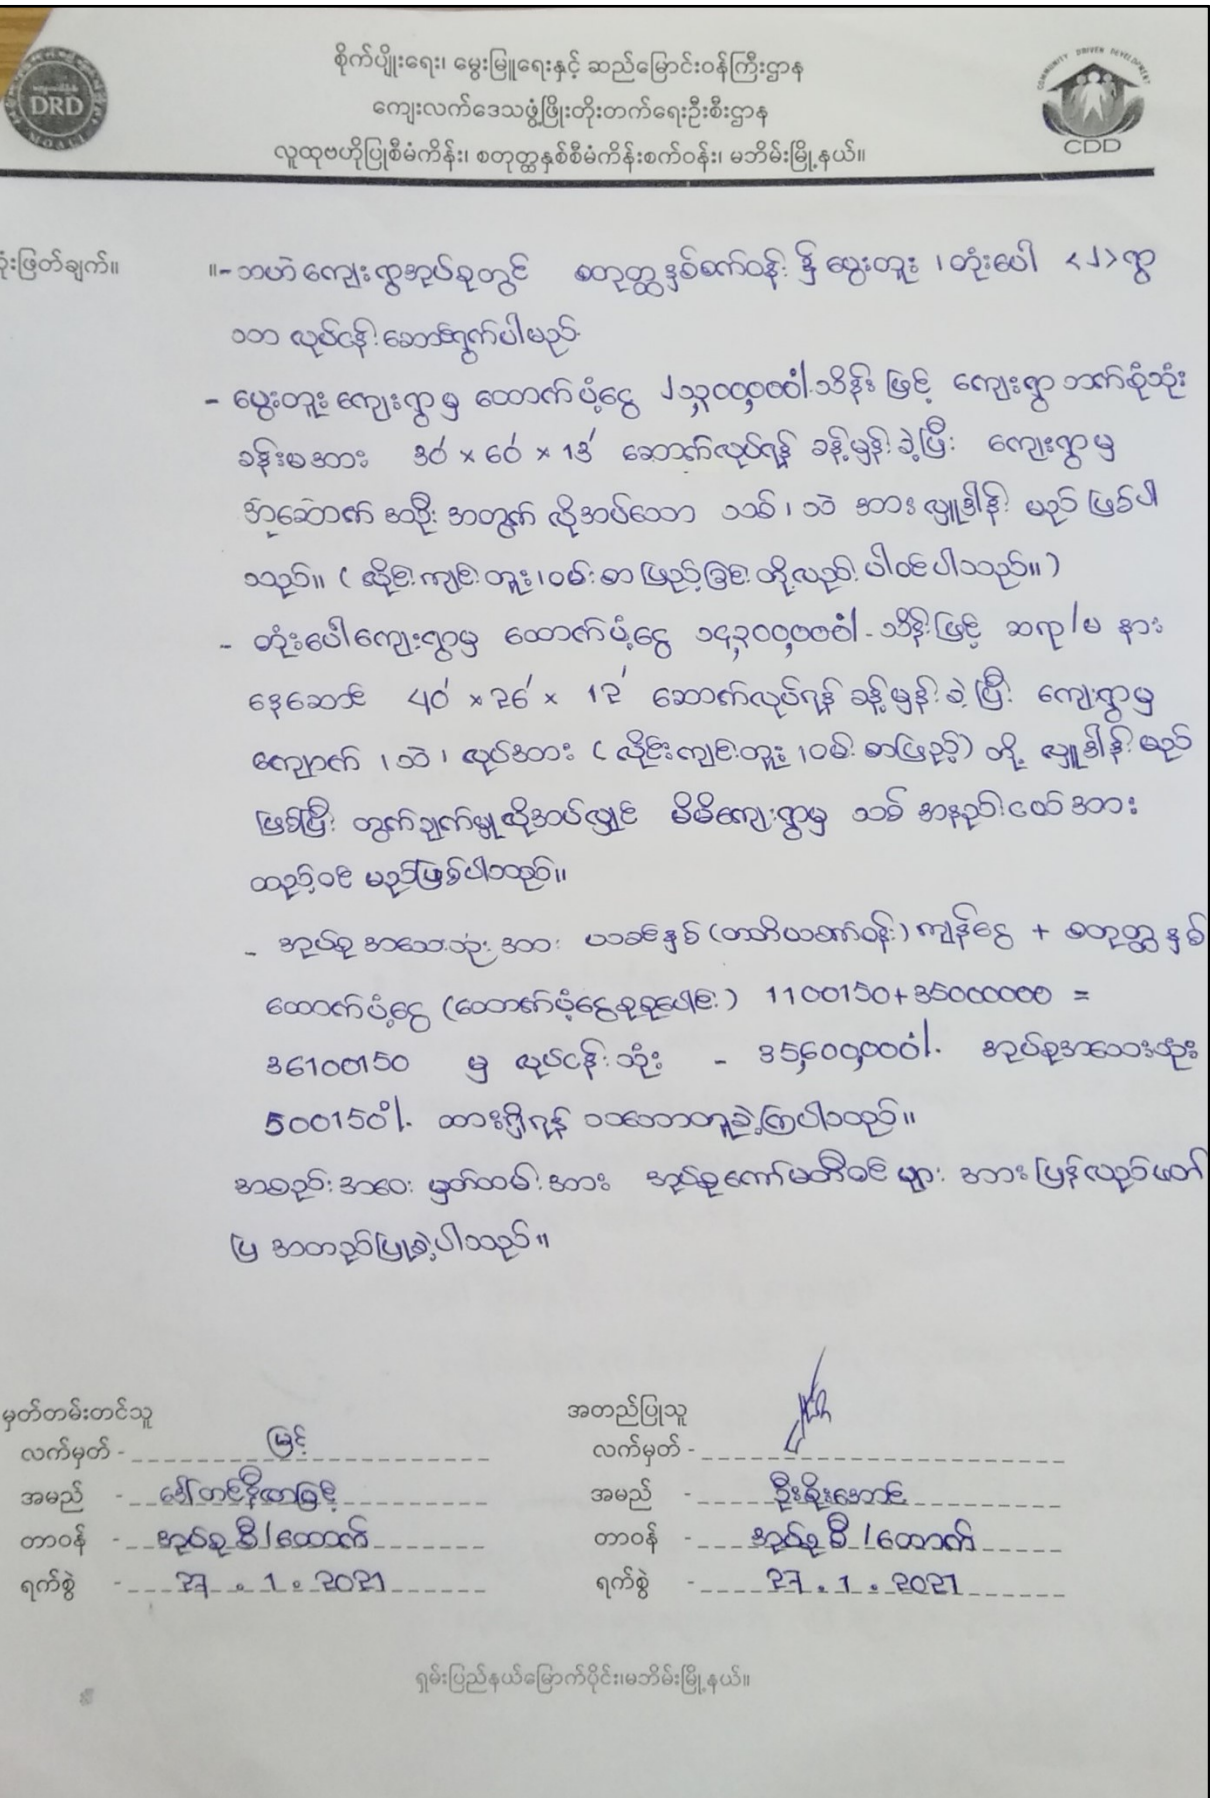 စိုက်ပျိုးရေး၊ မွေးမြူရေးနှင့် ဆည်မြောင်းဝန်ကြီးဌာန
ကျေးလက်ဒေသဖွံ့ဖြိုးတိုးတက်ရေးဦးစီးဌာန
လူထုဗဟိုပြုစီမံကိန်း၊ စတုတ္ထနှစ်စီမံကိန်းစက်ဝန်း၊ မဘိမ်းမြို့နယ်။
DRD
COMMUNITY DRIVEN DEVELOPMENT
CDD
ုံးဖြတ်ချက်။ ။- ဘဟဲ ကျေးရွာအုပ်စုတွင် စတုတ္ထနှစ်စက်ဝန်း ၌ မွေးတူး ၊ တုံးပေါ <၂> ရွာ
သာ လုပ်ငန်းဆောင်ရွက်ပါမည်
- မွေးတူးကျေးရွာမှ ထောက်ပံ့ငွေ ၂၁,၃၀၀,၀၀၀ိ/. သိန်း ဖြင့် ကျေးရွာ ဘက်စုံသုံး
ခန်းမအား 30' × 60' × 13' ဆောက်လုပ်ရန် ခန့်မှန်းခဲ့ပြီး ကျေးရွာမှ
အဆောက်အဦး အတွက် လိုအပ်သော သစ် ၊ သဲ အား လှူဒါန်း မည် ဖြစ်ပါ
သည်။ ( လိုင်းကျင်းတူး ၊ ဝမ်းစာ ဖြည့်ခြင်း တို့လည်း ပါဝင်ပါသည်။ )
- တုံးပေါကျေးရွာမှ ထောက်ပံ့ငွေ ၁၄,၃၀၀,၀၀၀ိ/- သိန်းဖြင့် ဆရာ/မ နား
နေဆောင် 40' × 26' × 12' ဆောက်လုပ်ရန် ခန့်မှန်းခဲ့ပြီး ကျေးရွာမှ
ကျောက် ၊ သဲ ၊ လုပ်အား ( လိုင်းကျင်းတူး ၊ ဝမ်းစာဖြည့်) တို့ လှူဒါန်းမည်
ဖြစ်ပြီး တွက်ချက်မှုလိုအပ်လျှင် မိမိကျေးရွာမှ သစ် အနည်းငယ်အား
ထည့်ဝင် မည်ဖြစ်ပါသည်။
- အုပ်စု အသေးသုံး အား ယခင်နှစ် (တတိယစက်ဝန်း) ကျန်ငွေ + စတုတ္ထနှစ်
ထောက်ပံ့ငွေ (ထောက်ပံ့ငွေစုစုပေါင်း) 1100150+35000000 =
36100150 မှ လုပ်ငန်းသုံး - 35,600,000ိ/. အုပ်စုအသေးသုံး
500150ိ/. ထားရှိရန် သဘောတူခဲ့ကြပါသည်။
အစည်းအဝေး မှတ်တမ်းအား အုပ်စုကော်မတီဝင် များ အား ပြန်လည်ဖတ်
ပြ အတည်ပြုခဲ့ပါသည်။
မှတ်တမ်းတင်သူ
လက်မှတ် - မြင့်
အမည် - ဒေါ်တင်နီလာမြင့်
တာဝန် - အုပ်စု စီ/ထောက်
ရက်စွဲ - 27.1.2021
အတည်ပြုသူ
လက်မှတ် -
အမည် - ဦးစိုးအောင်
တာဝန် - အုပ်စု စီ/ထောက်
ရက်စွဲ - 27.1.2021
ရှမ်းပြည်နယ်မြောက်ပိုင်း၊မဘိမ်းမြို့နယ်။